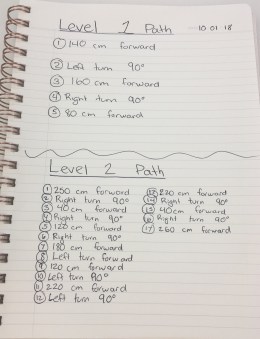 Level 1 Path 10 01 18
① 140 cm forward
② Left turn 90°
③ 160 cm forward
④ Right turn 90°
⑤ 80 cm forward
Level 2 Path
① 250 cm forward
② Right turn 90°
③ 40 cm forward
④ Right turn 90°
⑤ 120 cm forward
⑥ Right turn 90°
⑦ 180 cm forward
⑧ Left turn forward
⑨ 120 cm forward
⑩ Left turn 90°
⑪ 220 cm forward
⑫ Left turn 90°
⑬ 220 cm forward
⑭ Right turn 90°
⑮ 40cm forward
⑯ Right turn 90°
⑰ 260 cm forward